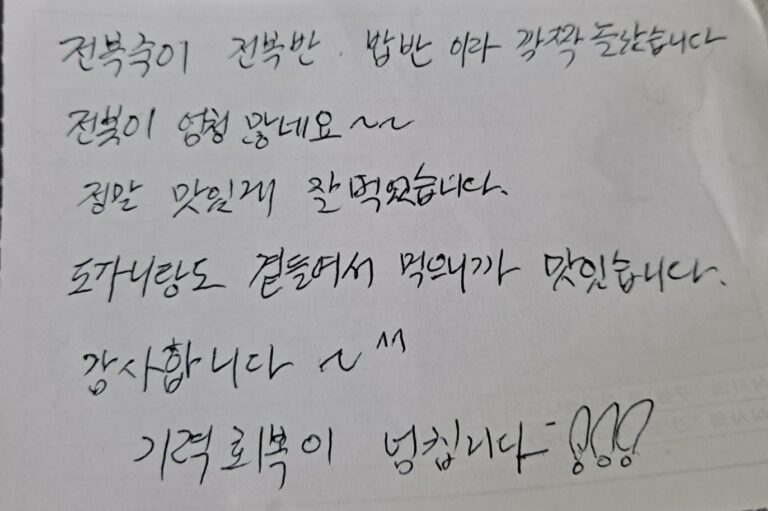 전복죽이 전복반. 밥반 이라 깍짝 놀랐습니다
전복이 엄청 많네요~~
정말 맛있게 잘 먹었습니다.
도가니탕도 곁들여서 먹으니까 맛있습니다.
감사합니다 ~^^
기력회복이 넘칩니다-!!!